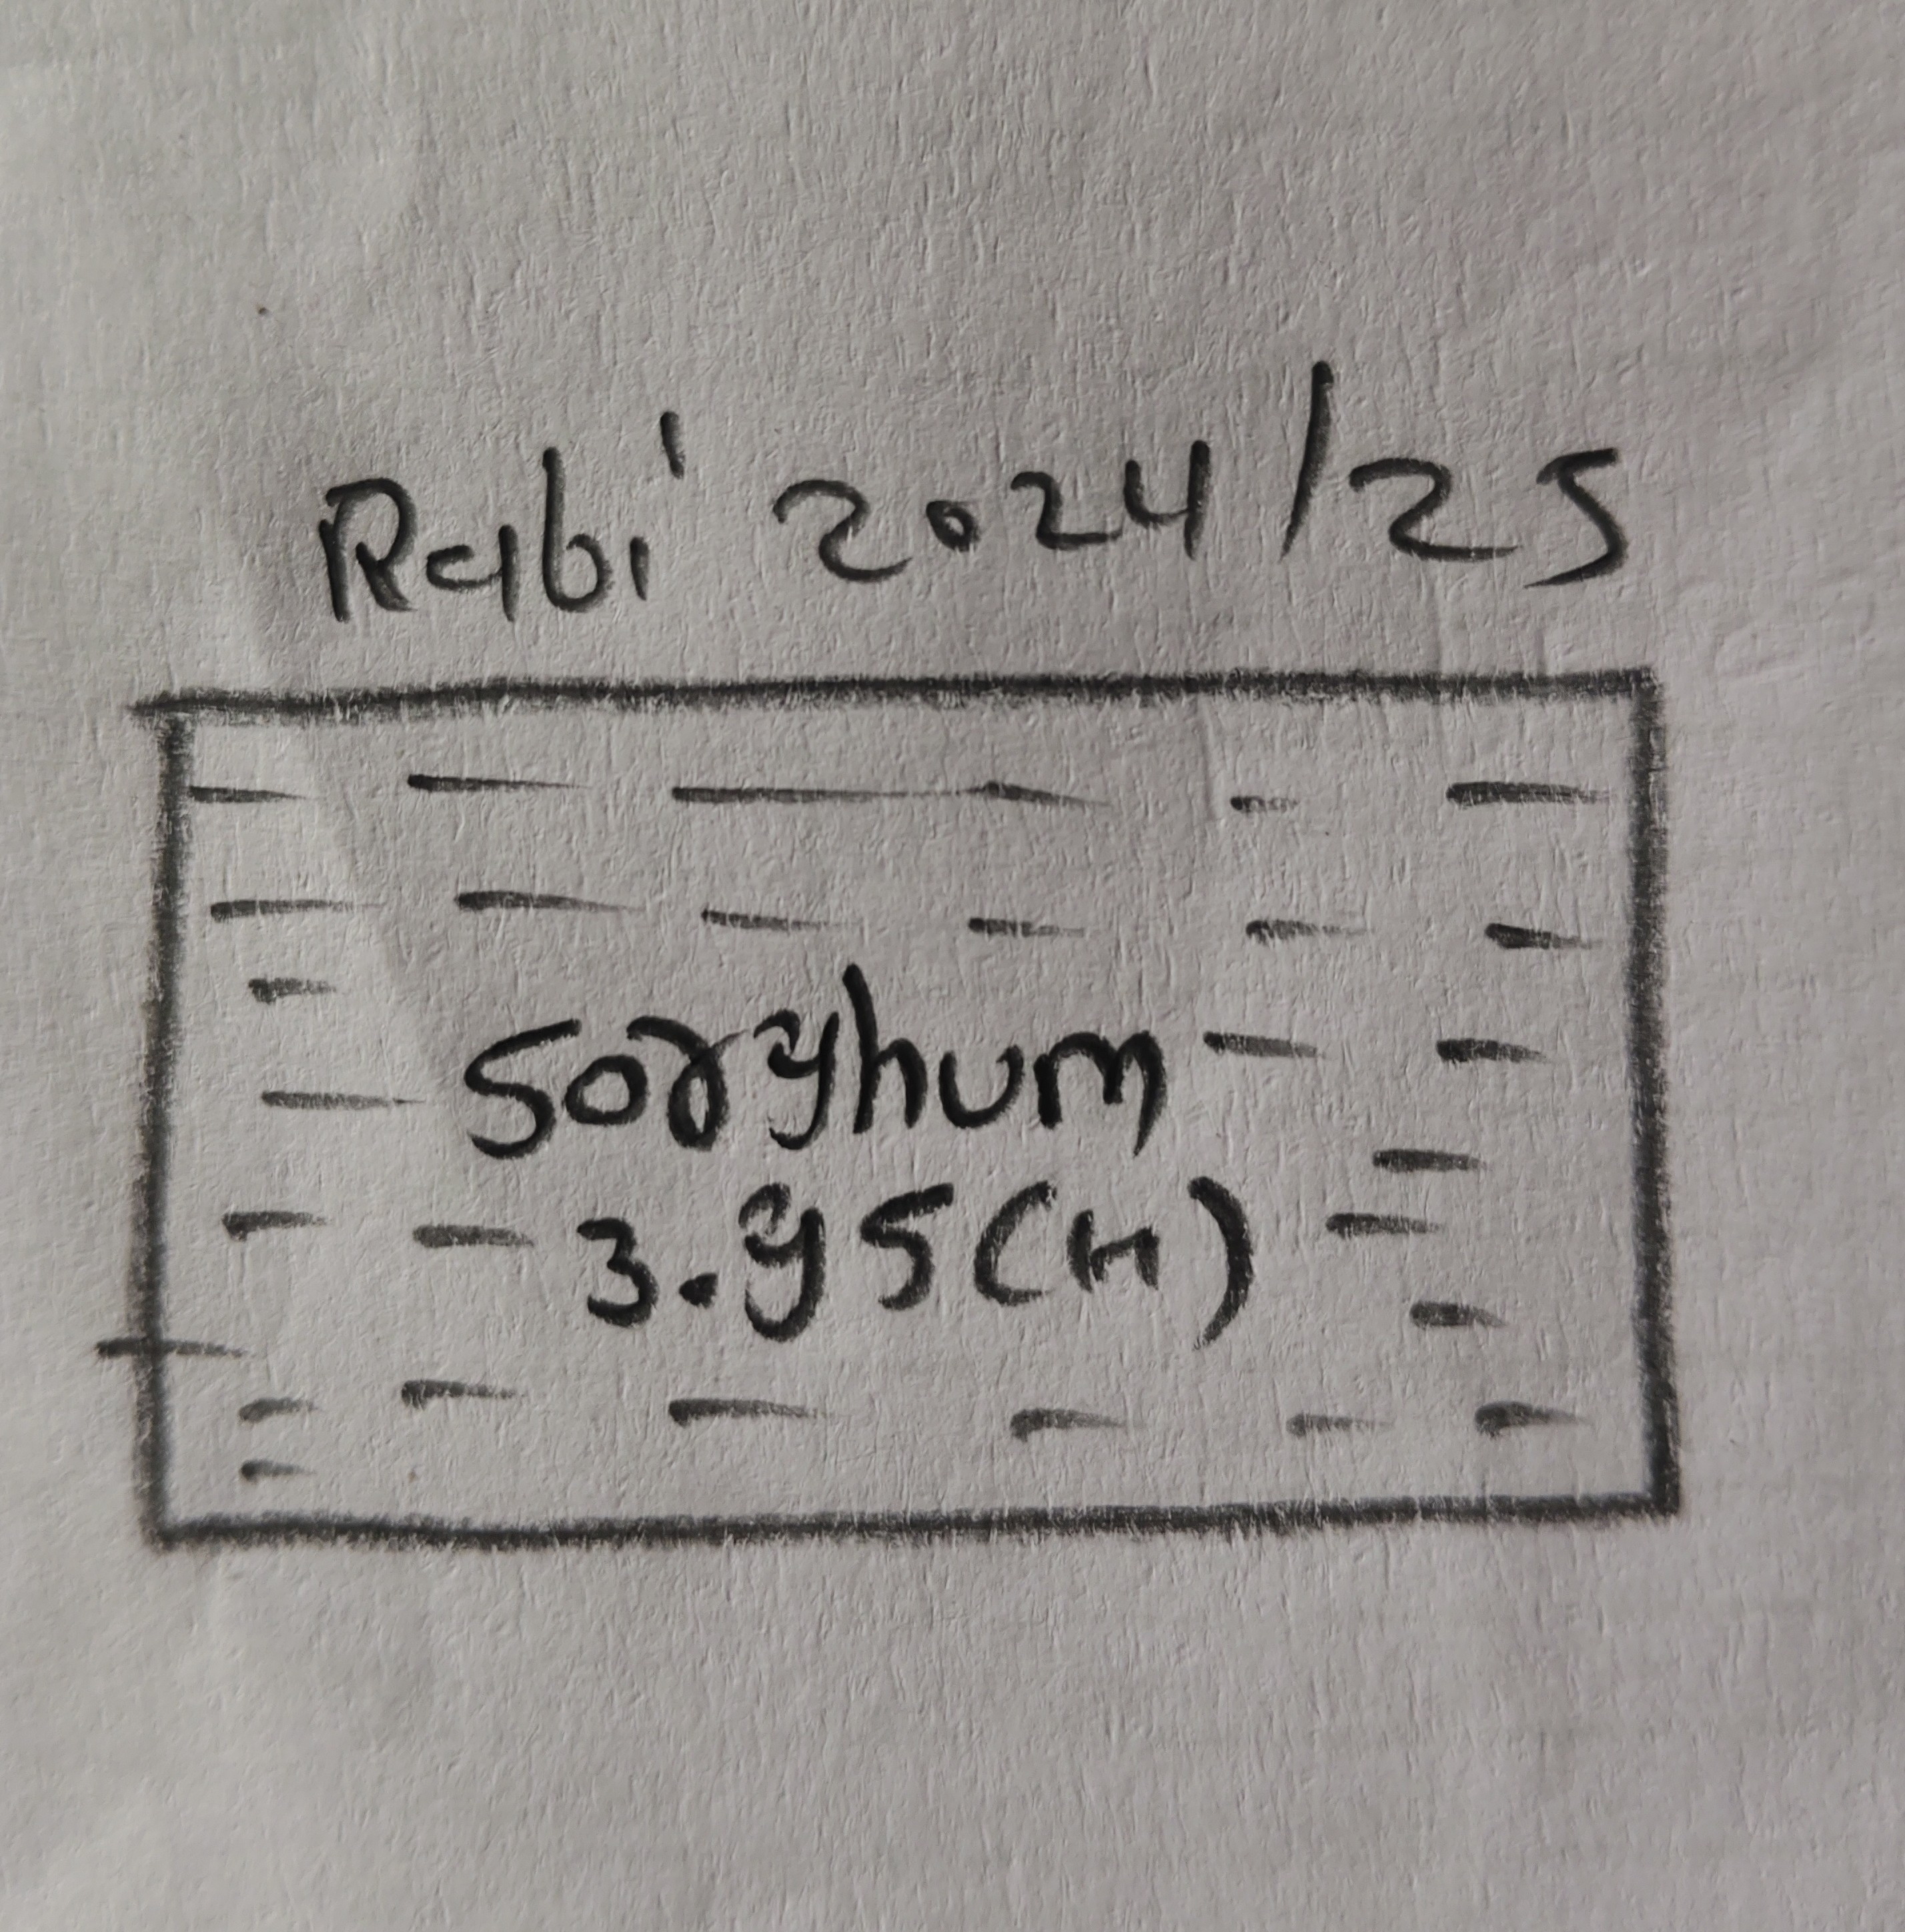 Rabi 2024/25
Sorghum
3.95(H)